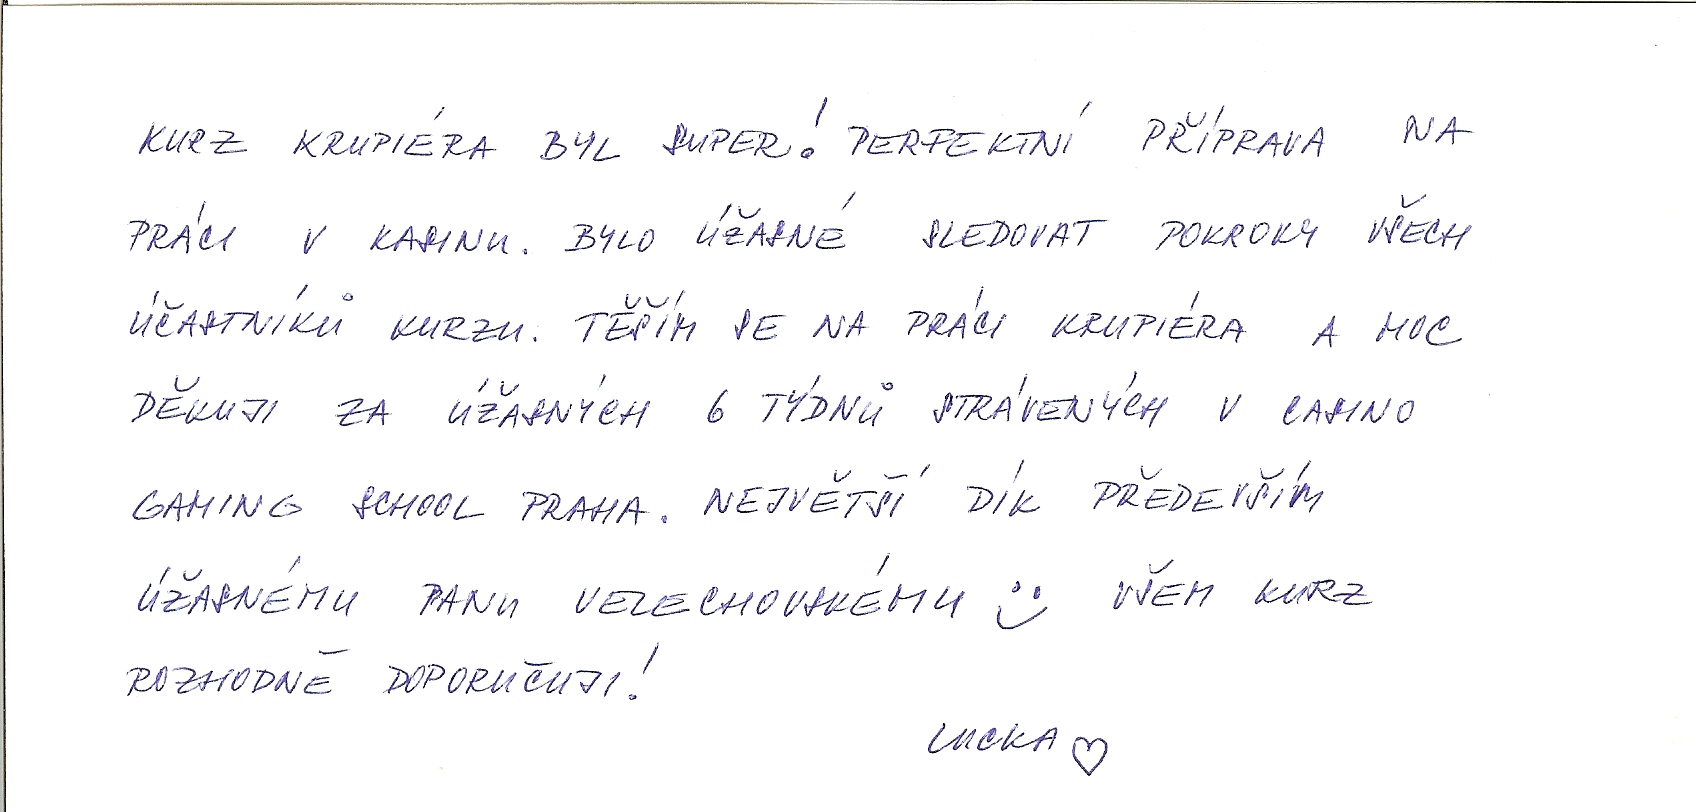 KURZ KRUPIÉRA BYL SUPER! PERFEKTNÍ PŘÍPRAVA NA
PRÁCI V KASINU. BYLO ÚŽASNÉ SLEDOVAT POKROKY VŠECH
ÚČASTNÍKŮ KURZU. TĚŠÍM SE NA PRÁCI KRUPIÉRA A MOC
DĚKUJI ZA ÚŽASNÝCH 6 TÝDNŮ STRÁVENÝCH V CASINO
GAMING SCHOOL PRAHA. NEJVĚTŠÍ DÍK PŘEDEVŠÍM
ÚŽASNÉMU PANU VELECHOVSKÉMU :) VŠEM KURZ
ROZHODNĚ DOPORUČUJI!
LUCKA ♡